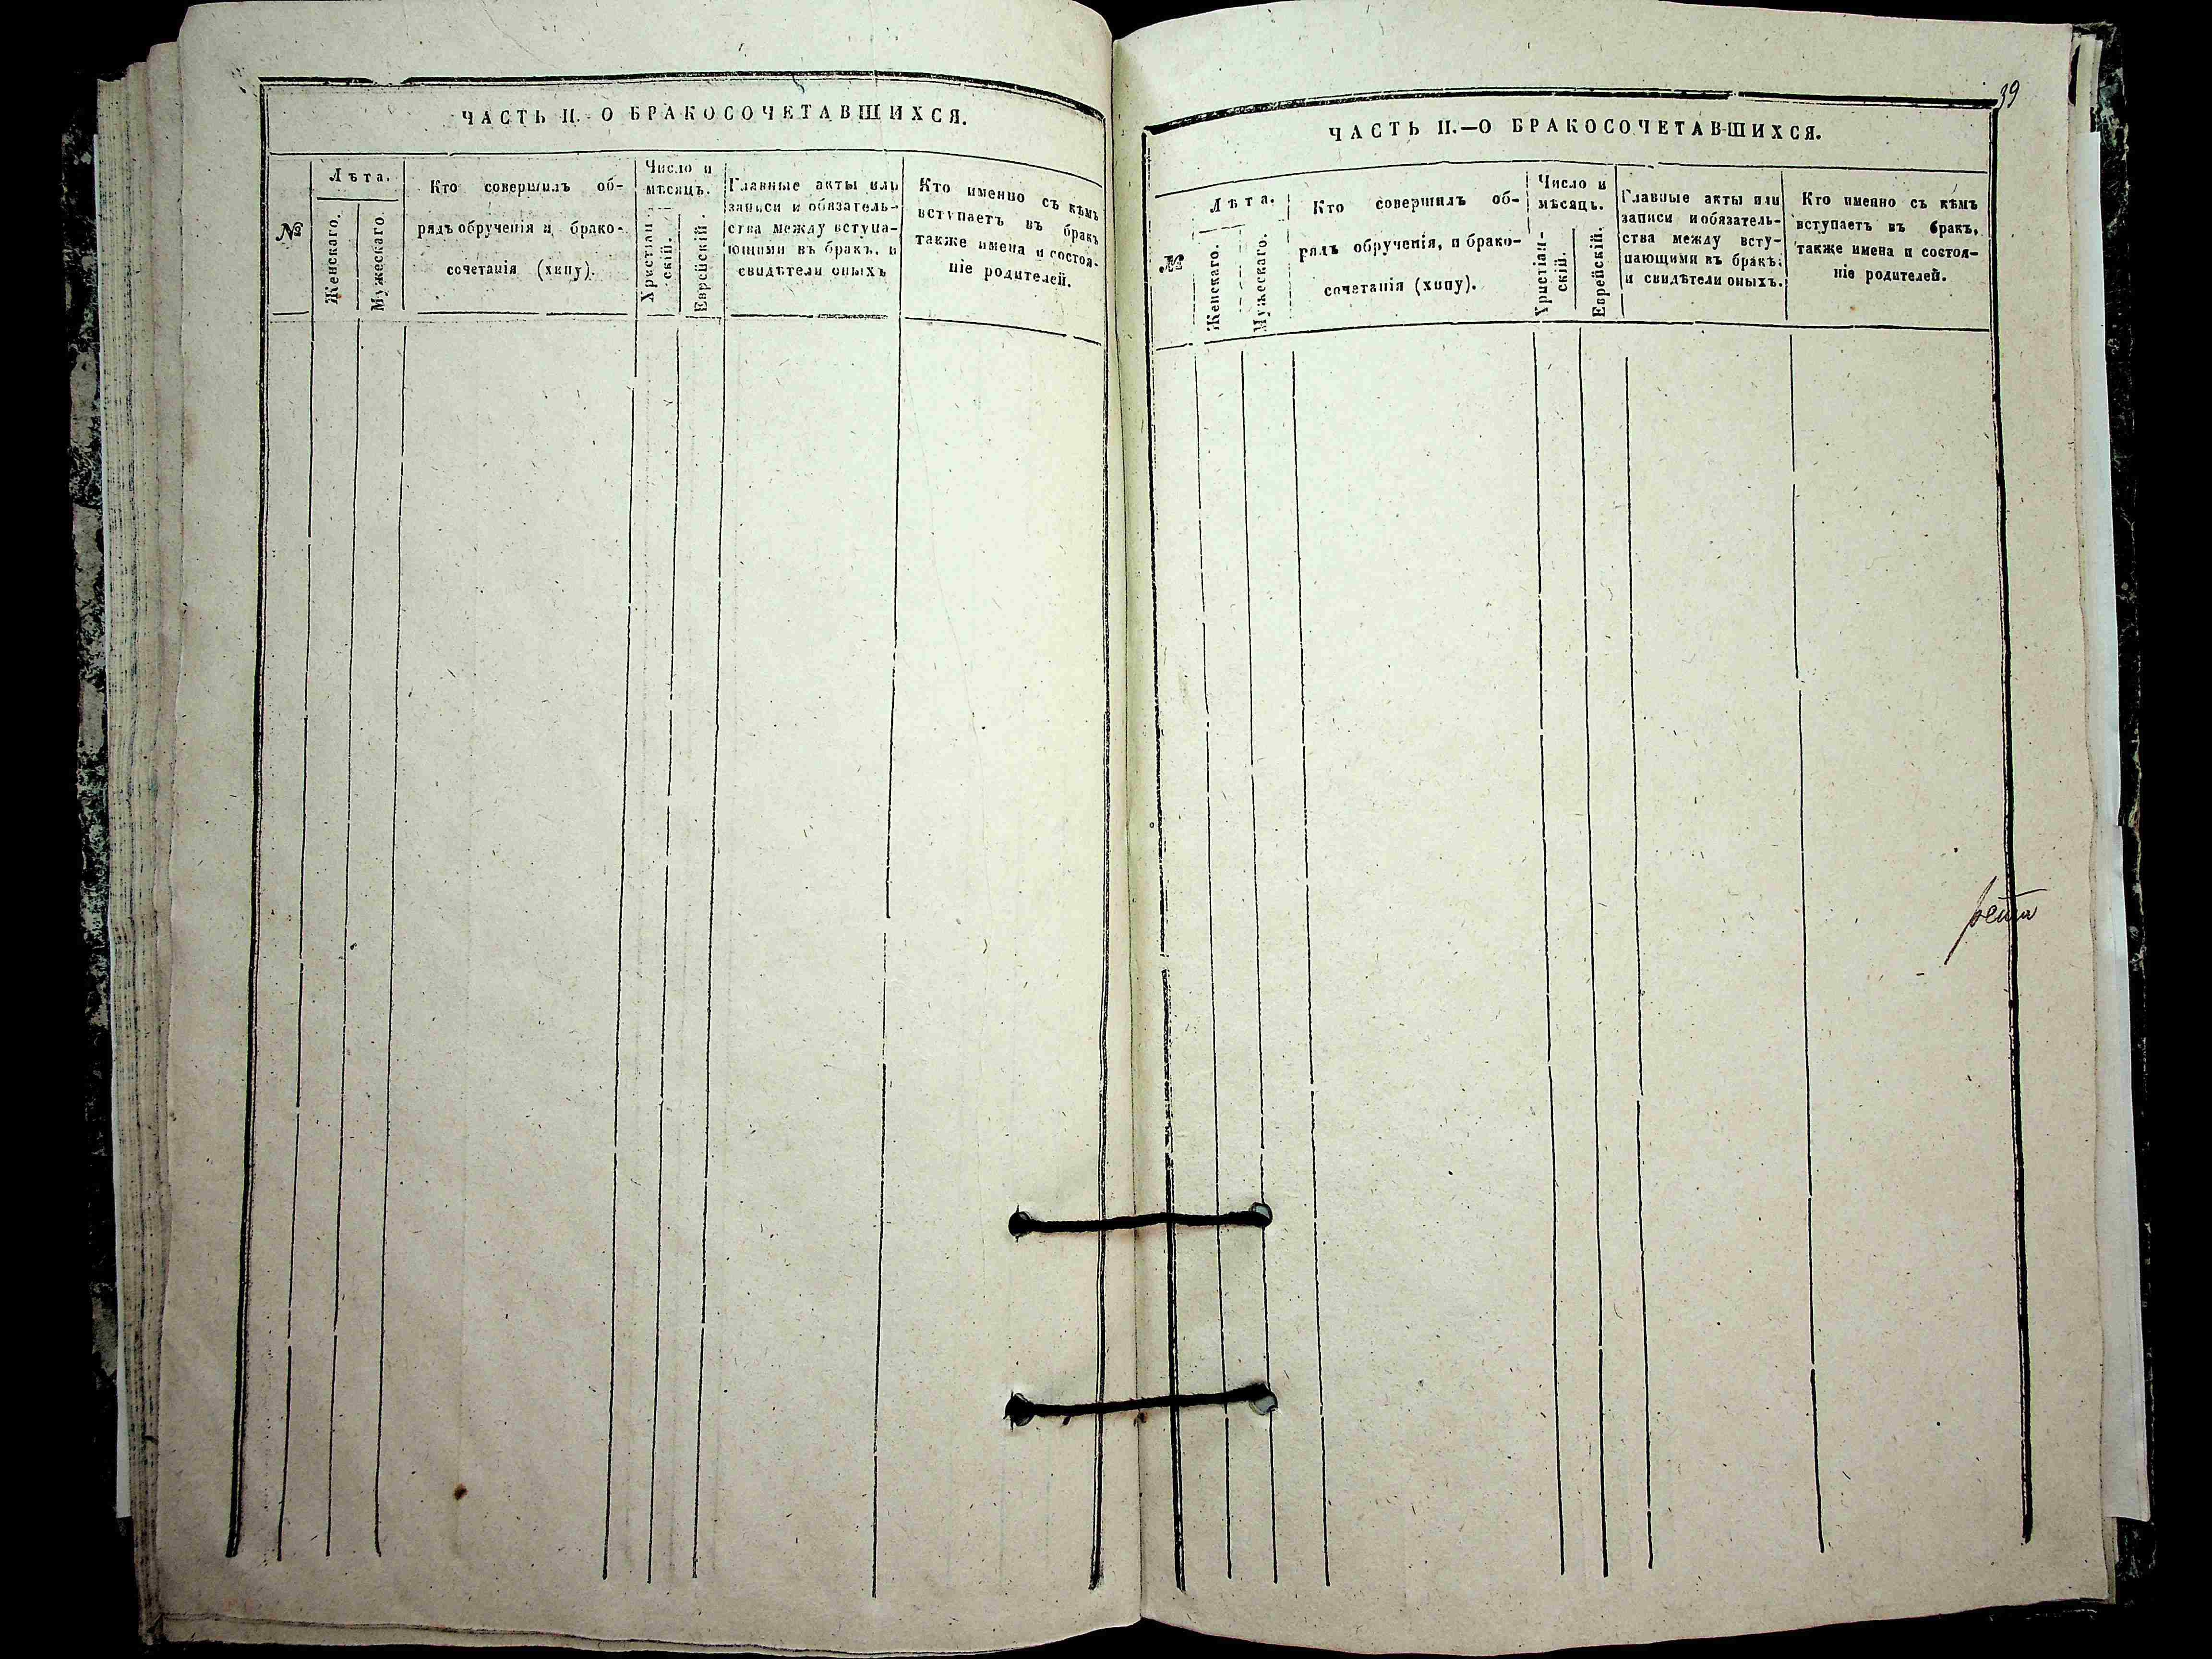 ЧАСТЬ II.-О БРАКОСОЧЕТАВШИХСЯ.
№
Лѣта.
Женскаго.
Мужескаго
Кто совершилъ об-
рядъ обрученія и брако-
сочетанія (хипу).
Число и
мѣсяцъ.
Христіан-
скій.
Еврейскій.
Главные акты или
записи и обязатель-
ства между вступа-
ющими въ бракъ. и
свидѣтели оныхъ
Кто именно съ кѣмъ
вступаетъ въ бракъ
также имена и состоя-
ніе родителей.
39
ЧАСТЬ II.—О БРАКОСОЧЕТАВШИХСЯ.
№
Лѣта.
Женскаго.
Мужескаго.
Кто совершилъ об-
рядъ обрученія, и брако-
сочетанія (хипу).
Число и
мѣсяцъ.
Христіан-
скій.
Еврейскій.
Главные акты или
записи и обязатель-
ства между всту-
пающими въ бракъ;
и свидѣтели оныхъ.
Кто именно съ кѣмъ
вступаетъ въ бракъ,
также имена и состоя-
ніе родителей.